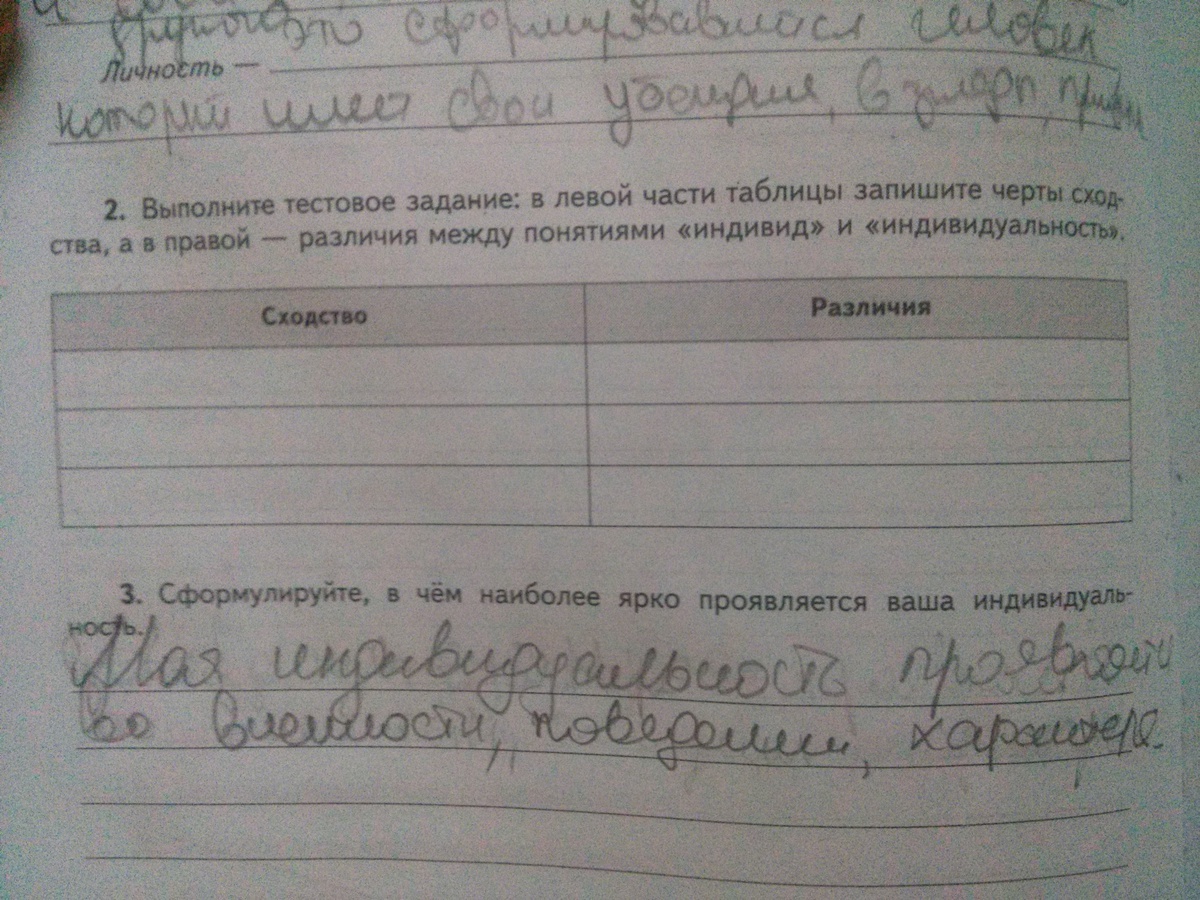 это сформировавшаяся человек
Личность —
который имеет свои убеждия, взгляды,
2. Выполните тестовое задание: в левой части таблицы запишите черты сход-
ства, а в правой — различия между понятиями «индивид» и «индивидуальность».
Сходство Различия
3. Сформулируйте, в чём наиболее ярко проявляется ваша индивидуаль-
ность.
Моя индивидуальность
во внешности, поведении, характере.